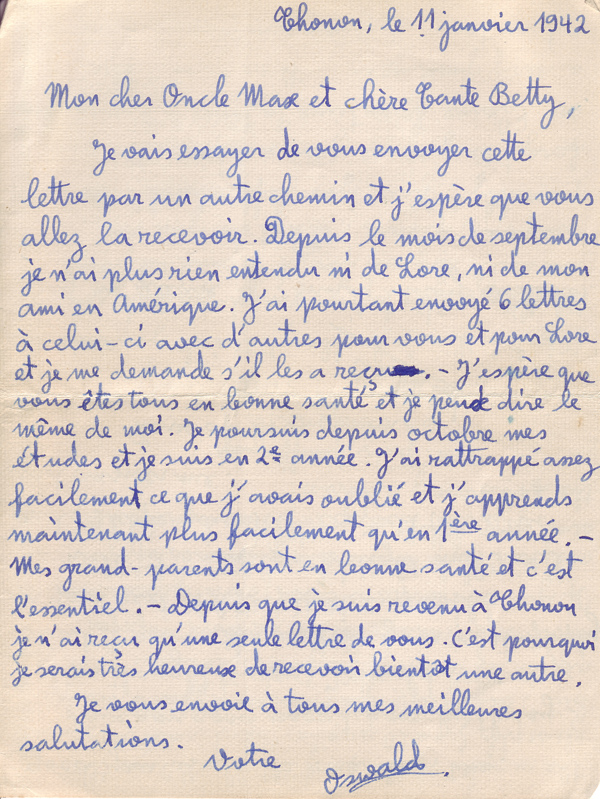 Thonon, le 11 janvier 1942
Mon cher Oncle Max et chère Tante Betty,
Je vais essayer de vous envoyer cette
lettre par un autre chemin et j'espère que vous
allez la recevoir. Depuis le mois de septembre
je n'ai plus rien entendu ni de Lore, ni de mon
ami en Amérique. J'ai pourtant envoyé 6 lettres
à celui-ci avec d'autres pour vous et pour Lore
et je me demande s'il les a reçu. - J'espère que
vous êtes tous en bonne santé, et je peux dire le
même de moi. Je poursuis depuis octobre mes
études et je suis en 2e année. J'ai rattrappé assez
facilement ce que j'avais oublié et j'apprends
maintenant plus facilement qu'en 1ère année. -
Mes grand-parents sont en bonne santé et c'est
l'essentiel. - Depuis que je suis revenu à Thonon
je n'ai reçu qu'une seule lettre de vous. C'est pourquoi
je serais très heureux de recevoir bientôt une autre.
Je vous envoie à tous mes meilleures
salutations.
Votre
Oswald.